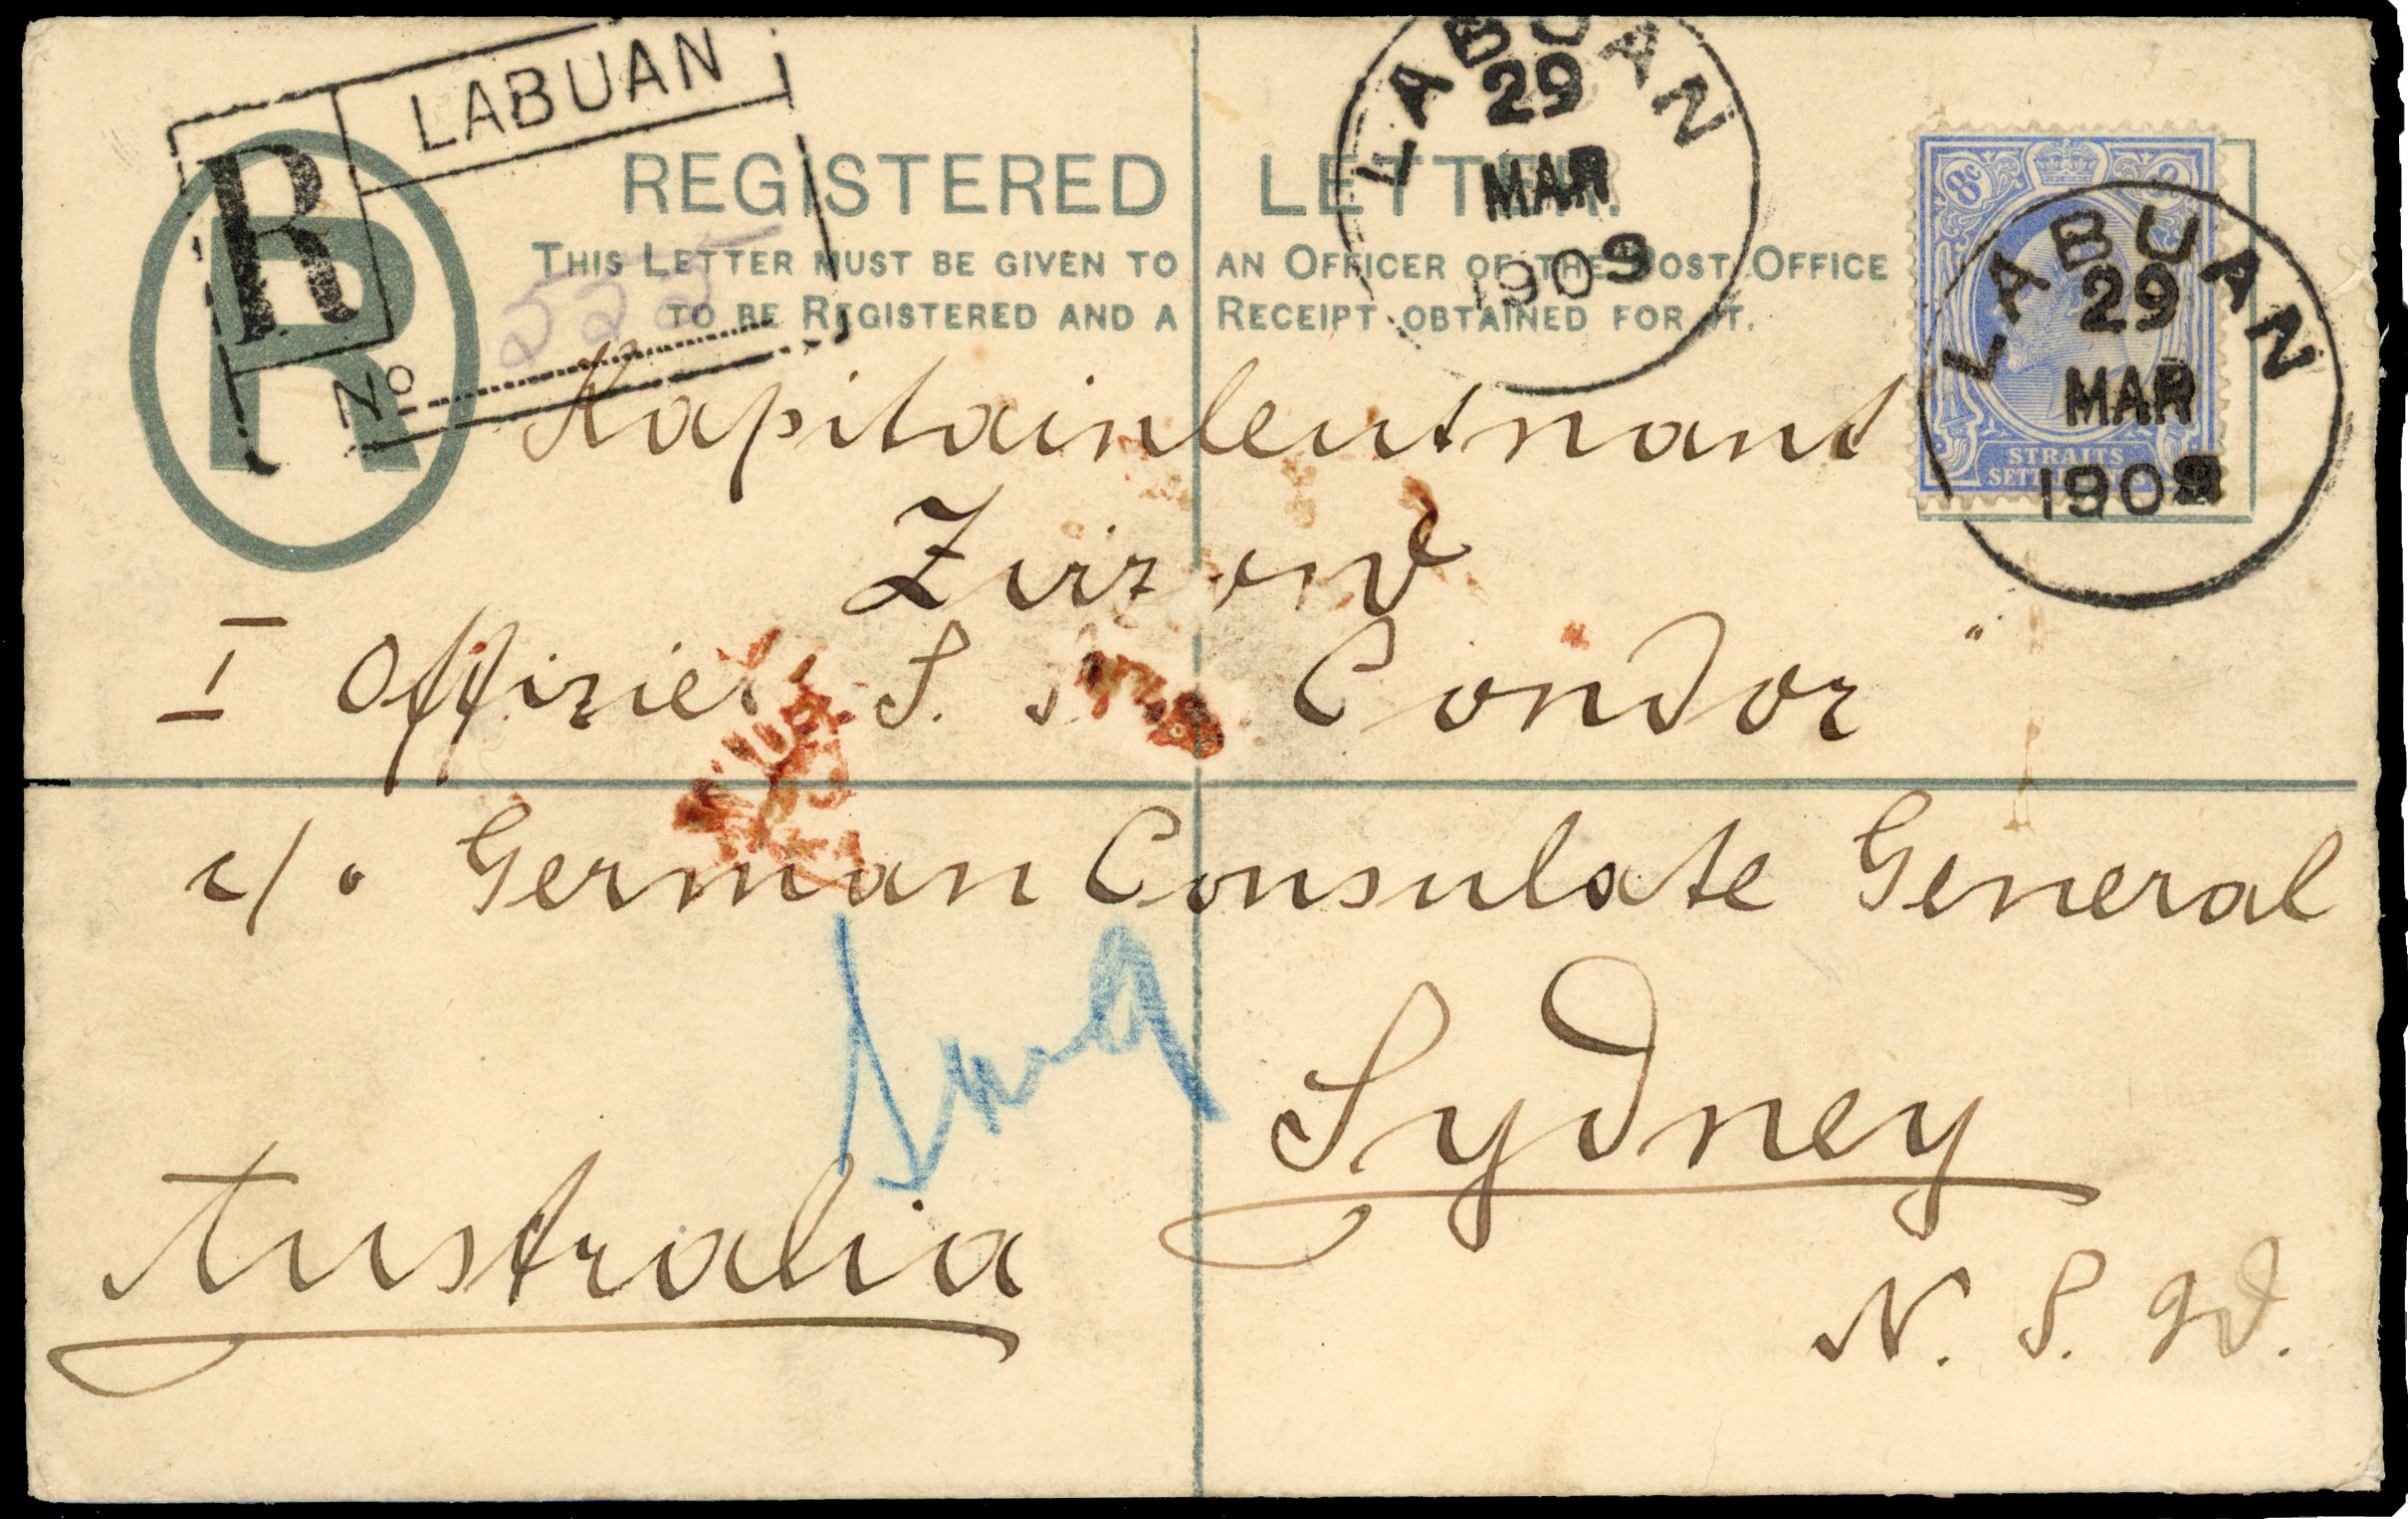 LABUAN
R
Nº
R
REGISTERED LETTER.
THIS LETTER MUST BE GIVEN TO AN OFFICER OF THE POST OFFICE
TO BE REGISTERED AND A RECEIPT OBTAINED FOR IT.
LABUAN
29
MAR
1909
8c
STRAITS
SETTLEMENTS
LABUAN
29
MAR
1909
Kapitainleutnant
I Offizier S. Condor"
c/o German Consulate General
Sydney
Australia
N. S. W.